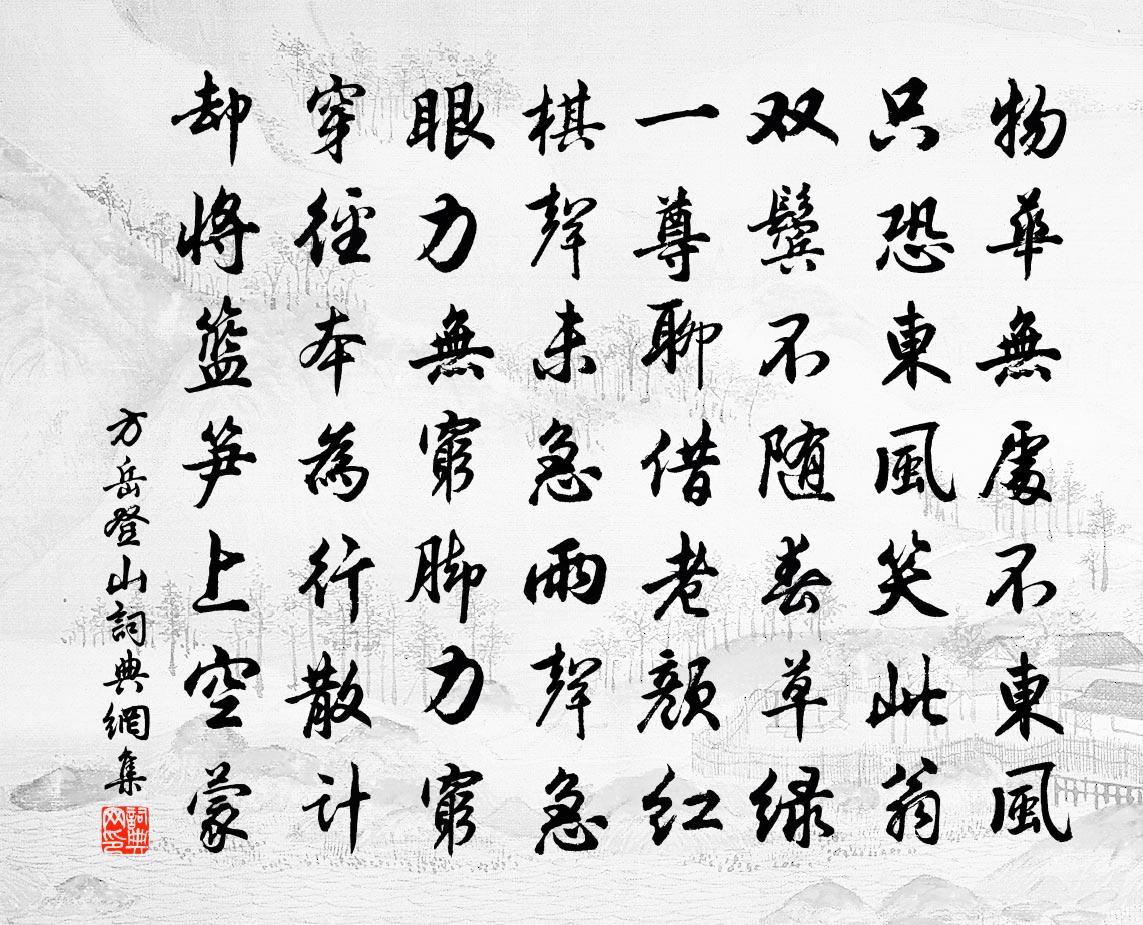 物華無處不東風
只恐東風笑此翁
双鬓不随春草緑
一尊聊借老顏紅
棋聲未急雨聲急
眼力無窮脚力窮
穿徑本為行散計
却將籃笋上空蒙
方岳登山詞典網集
詞典网印